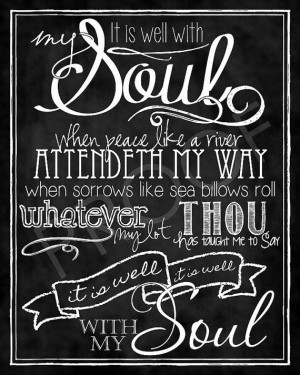 It is well with
my Soul
when peace like a river
ATTENDETH MY WAY
when sorrows like sea billows roll
whatever my lot THOU
has taught me to say
it is well it is well
WITH MY Soul
PROOF